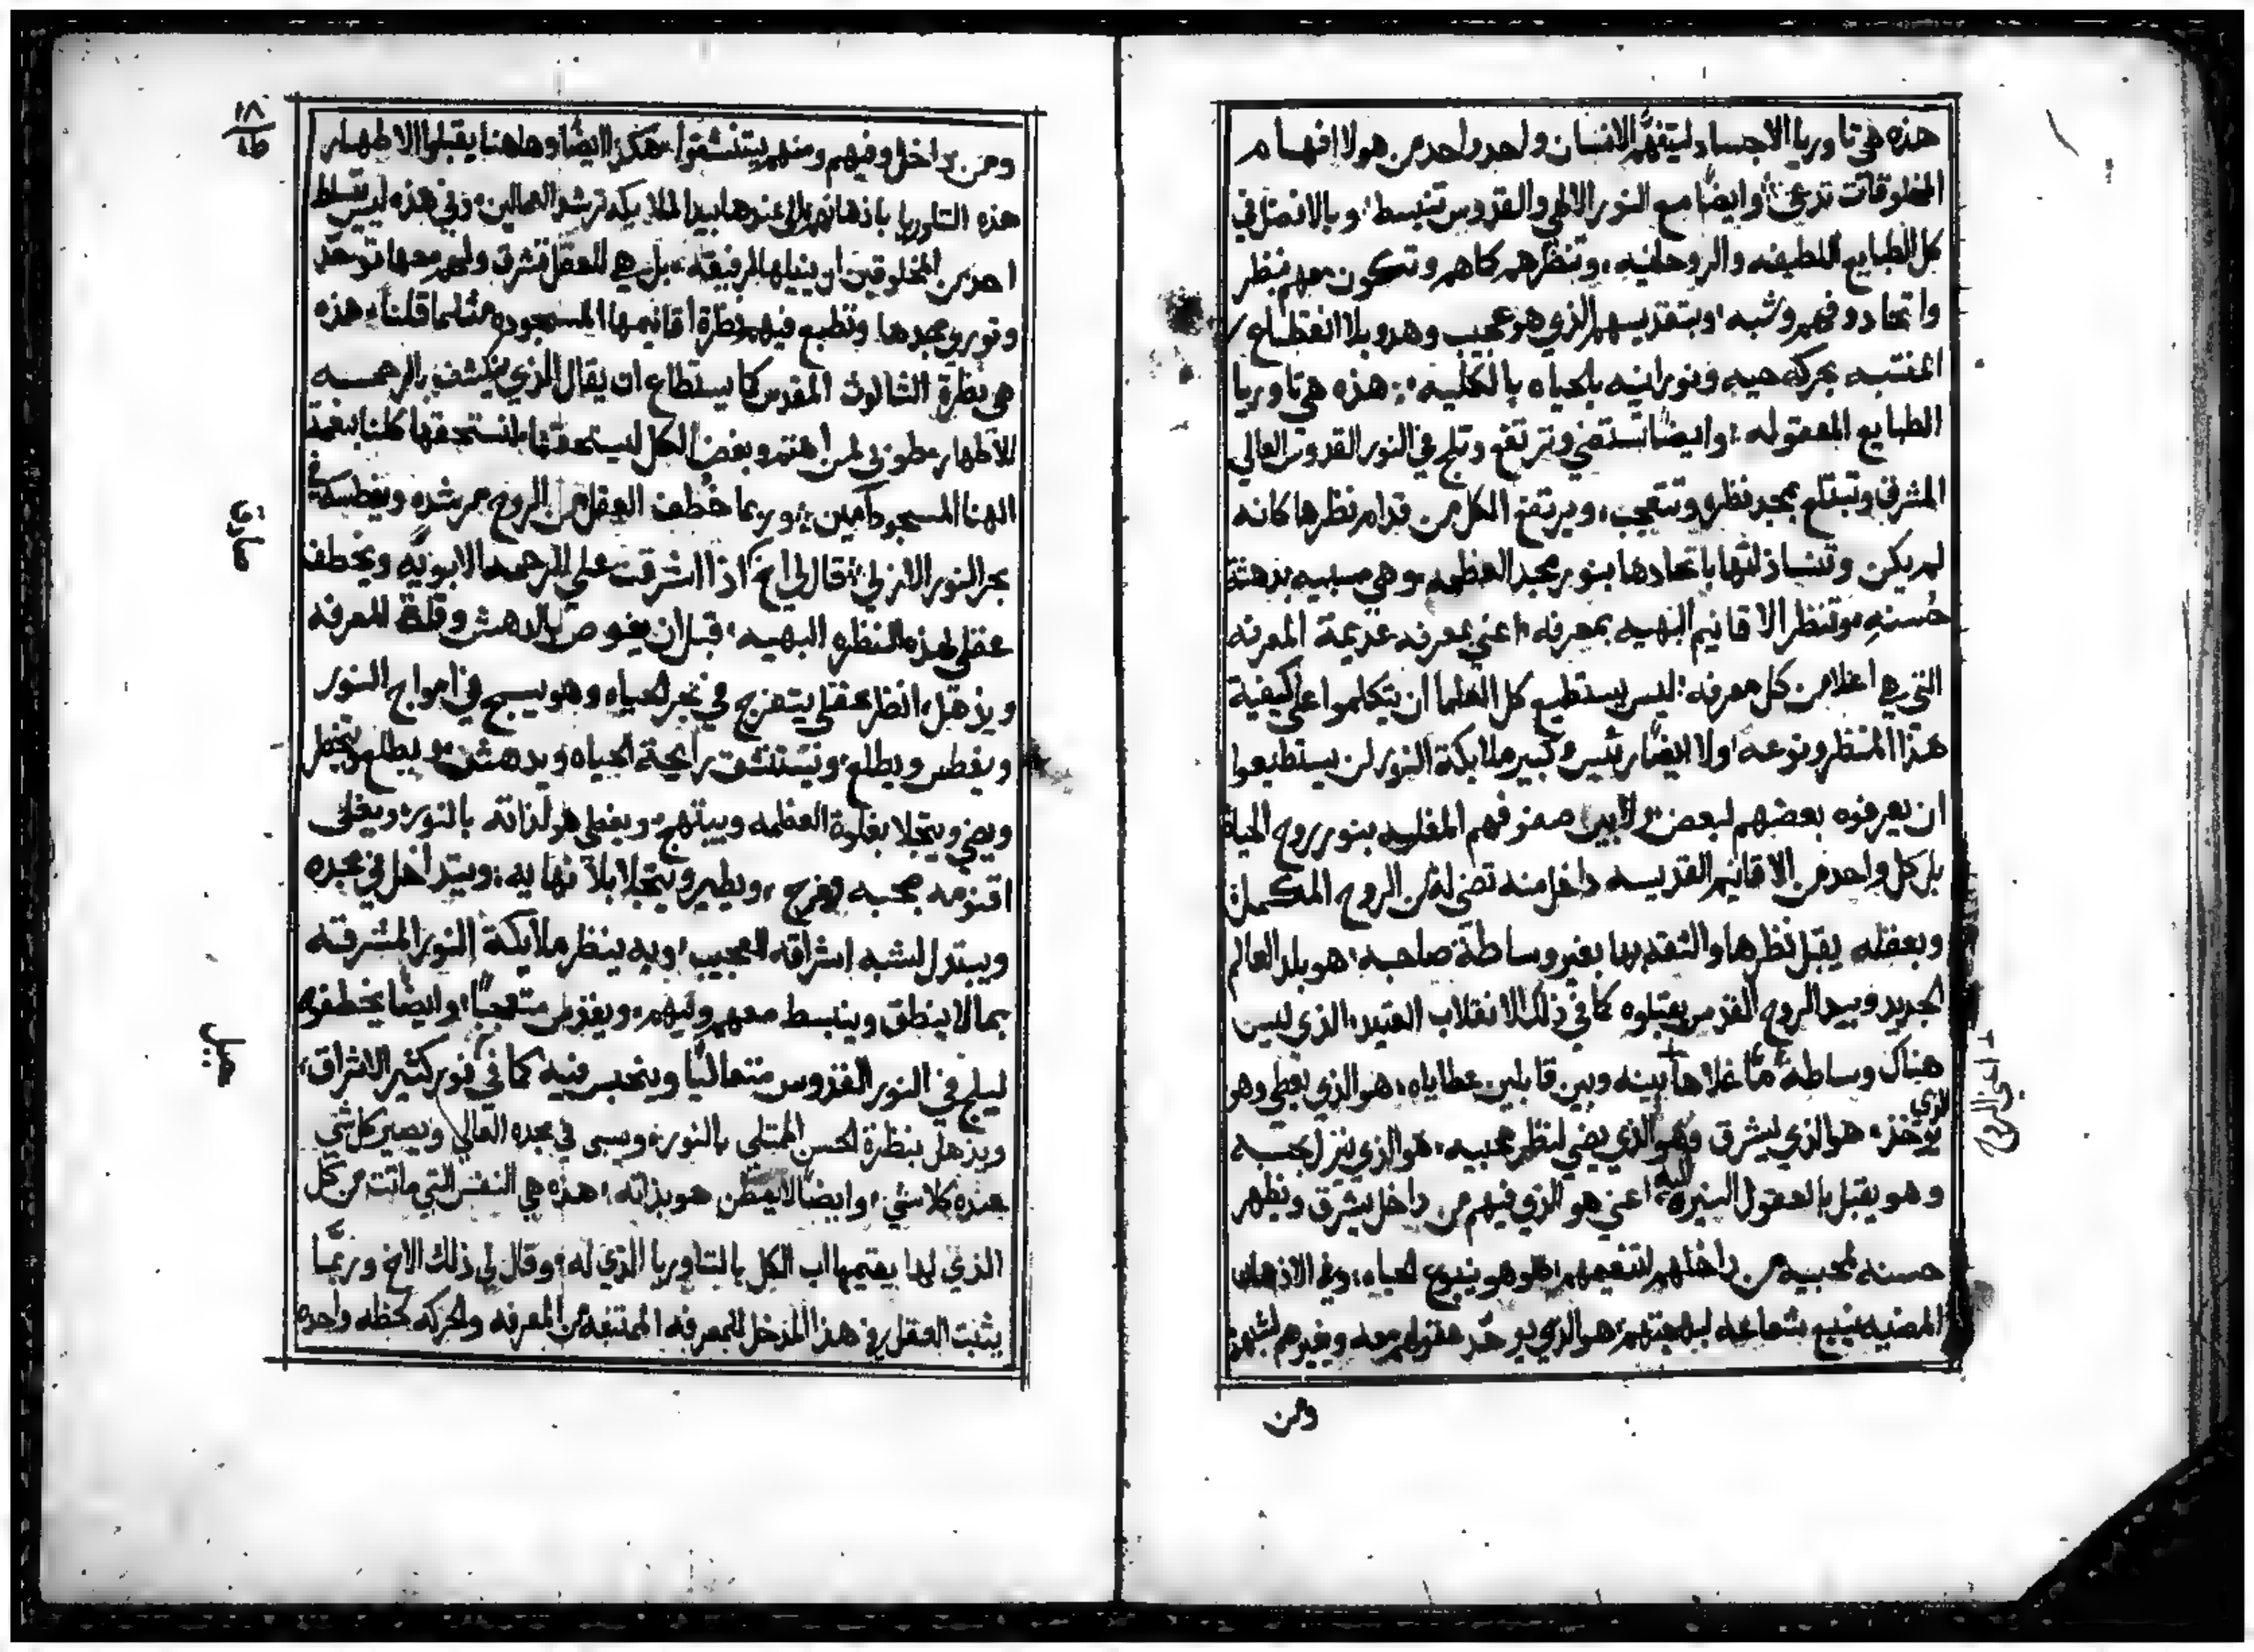 هذه هي تاوريا الاجساد ليتفهم الانسان واحد واحد من هولا افهام
المخلوقات تدعى وايضا مع النور الالهي والقدوس تنبسط وبالانصال في
كل الطبايع اللطيفه والروحانيه وتنظرهم كلهم وتتكون معهم بنظر
واتحاد وفهم وشبه وبتقديسهم الذي هو عجيب وهدو بلا انقطاع
المنتبه بحركه حيه ونورانيه بالحياه بالكليه هذه هي تاوريا
الطبايع المعقوله وايضا تستضي وترتفع وتلج في النور القدوس العالي
المشرق وتبتلع بمجد نظره وتتعجب ويرتفع الكل من قدام نظرها كانه
لم يكن وتنسا ذاتها باتحادها بنور مجد العظمه وهي مسبيه بدهشة
حسنه وتنظر الاقانيم البهيه بمعرفه اعني بمعرفه عديمة المعرفه
التي هي اعلا من كل معرفه ليس يستطيع كل العلما ان يتكلموا على كيفية
هذا المنظر ونوعه ولا ايضا رئيس وكبير ملايكة النور لن يستطيعوا
ان يعرفوه بعضهم لبعض ولا بين صفوفهم بنور روح الحياة
بل كل واحد من الاقانيم القديسه داخل منه تضي له من الروح المكمل
وبعقله يقبل نظرها والتقديها بغير وساطة صاحبه هو بلد العالم
الجديد وبيد الروح القدس يقبلوه كما في ذلك الانقلاب العتيد الذي ليس
هناك وساطة ما غلاها بينه وبين قابلين عطاياه هو الذي يعطي وهو
الذي
يوخذ هو الذي يشرق وهو الذي يضي لنظر محبيه هو الذي ينزل بحبه
وهو يقبل بالعقول النيره اليه اعني هو الذي فيهم من داخل يشرق ويظهر
حسنه لمحبيه من داخلهم لتنعيمهم هو هو ينبوع الحياه وفي الاذهان
المضيه ينبع شعاعه لبهجتهم هو الذي يوحد عقولهم معه ويغيرهم لشبهه
ومن
١٨
ومن داخل وفيهم ومنهم يتنشقوا هكذا ايضا وهاهنا يقبلوا الاطهار
هذه التاوريا باذهانهم لا عندها بيد الملايكه ترشد العمالين وفي هذه ليس يتسلط
احد من المخلوقين ان ينيلها لرفيقه بل هي للعقل تشرق ولهم معها توحد
وتوريه مجدها وتطبع فيهم نظرة اقانيمها المسجوده مثلما قلنا هذه
هي نظرة الثالوث المقدس كما يستطاع ان يقال الذي ينكشف بالرحمه
للاطهار طوبى لمن اهتم وبغض الكل ليستحقها لنستحقها كلنا بنعمة
الهنا المسجود امين وربما خطف العقل من الروح مرشده ويغطسه في
بحر النور الازلي قال لي اخ اذا اشرقت علي الرحمه الابويه ويخطف
عقلي لهذه النظره البهيه قبل ان يغوص بالدهش وقلة المعرفه
ويذهل انظر عقلي يتفرج في بحر الحياه وهو يسبح في امواج النور
ويغطس ويطلع ويستنشق رايحة الحياه ويدهش ويطلع
ويضي ويتجلا بغلوة العظمه ويبتهج ويغطي هو لذاته بالنور ويغلى
اقنومه بمحبه وفرح ويطير ويتجلا بلا نهايه ويتداخل في مجده
ويبتدل لشبه اشراقه العجيب وبه ينظر ملايكة النور المشرقه
بما لا ينطق وينبسط معهم وفيهم ويفرز متعجبا وايضا يخطفوه
ليلج في النور القدوس متعاليا وينحبس فيه كما في نور كثير الاشراق
ويذهل بنظرة الحسن الممتلي بالنور ويسبى في مجده العالي ويصير كل شي
عنده كلا شي وايضا لا يفطن هو بذاته هذه هي النفس التي ماتت من كل
الذي لها يقيمها اب الكل بالتاوريا الذي له وقال لي ذلك الاخ وربما
يثبت العقل في هذا المدخل للمعرفه الممتنعه من المعرفه والحركه لحظه واحده